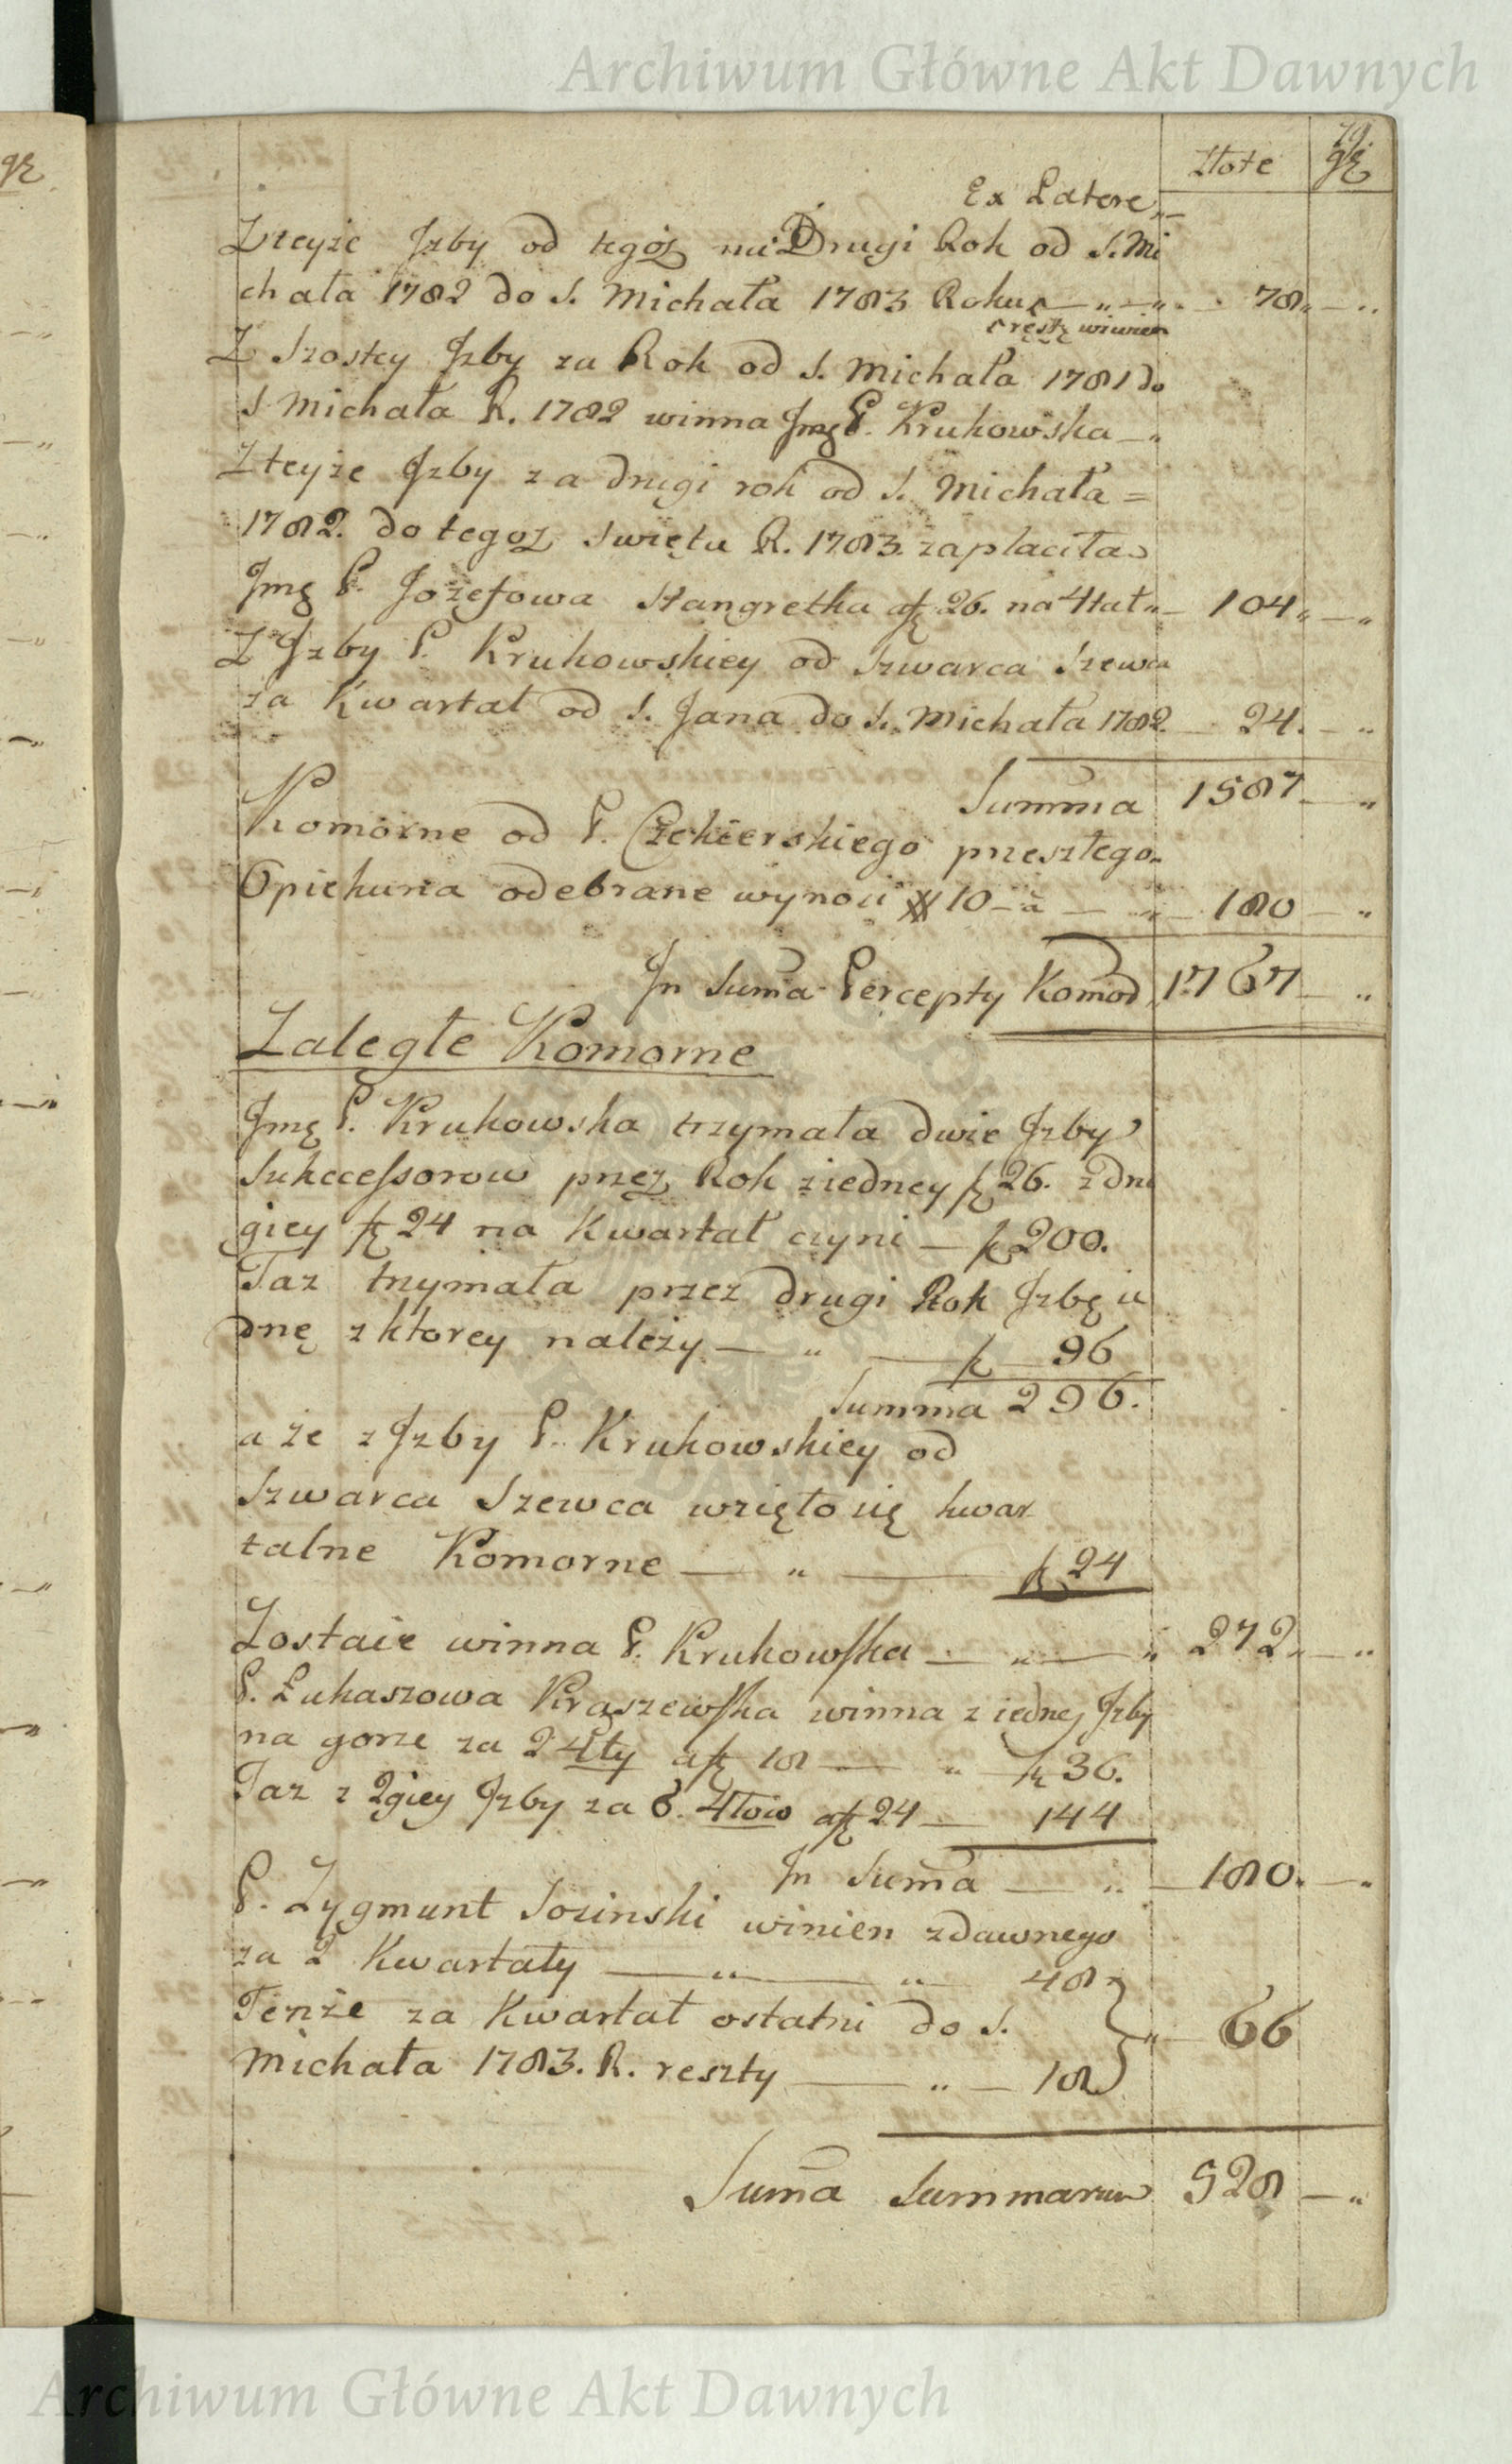 Archiwum Główne Akt Dawnych
79.
złote gr
gr
Ex Latere „ —
Z teyże Jzby od tegoż Drugi Rok od S. Mi
chała 1782 do S. Michała 1783 Roku — „ — „ 78 „ — „
resztę winien
Z Szostey Jzby za Rok od S. Michała 1781 do
S Michała R. 1782 winna Jmę P. Krukowska — „
Z teyże Jzby za drugi rok od S. Michała =
1782. do tegoż Swięta R. 1783. zapłaciła
Jmę P. Jozefowa Stangretka a f 26. na 4tał „ — 104 „ — „
Z Jzby P. Krukowskiey od Szwarca Szewca
za Kwartał od S. Jana do S. Michała 1782. — 24. — „
Summa 1587 — „
Komorne od P. Czekierskiego przeszłego
Opiekuna odebrane wynosi # 10 — „ — „ — 180 — „
Jn Suma Percepty Komor. 1767 — „
Zaległe Komorne
Jmę P. Krukowska trzymała dwie Jzby
Sukcessorow przez Rok z iedney f 26. z dru
giey f 24 na Kwartał czyni — f 200.
Taz trzymała przez drugi Rok Jzbę ie
dnę z ktorey należy — „ — f 96
Summa 296.
a że z Jzby P. Krukowskiey od
Szwarca Szewca wzięto się kwar
talne Komorne — „ — f 24
Zostaie winna P. Krukowska — „ — „ 272 „ — „
P. Łukaszowa Kraszewska winna z iedney Jzby
na gorze za 2 4ły a f 18 — „ — f 36.
Taz z 2giey Jzby za 6. 4łow a f 24 — 144
Jn Suma — „ — 180. — „
P. Zygmunt Sosinski winien z dawnego
za 2 Kwartały — „ — „ 48
Tenże za Kwartał ostatni do S. „ — 66
Michała 1783. R. reszty — „ — 18
Suma Summarum 528 — „
Archiwum Główne Akt Dawnych